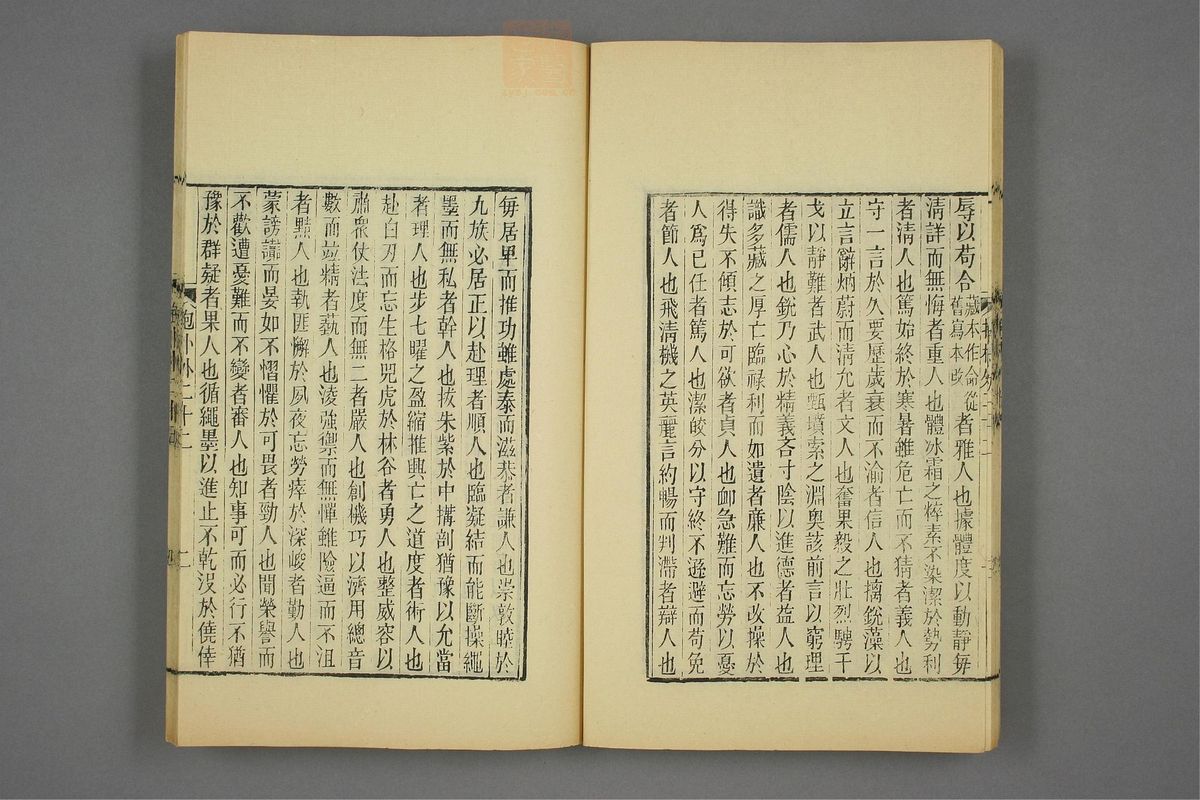 辱以苟合藏本作命從舊寫本改者雅人也據體度以動靜每
清詳而無悔者重人也體冰霜之粹素不染潔於勢利
者清人也篤始終於寒暑雖危亡而不猜者義人也
守一言於久要歷歲衰而不渝者信人也摛銳藻以
立言辭炳蔚而清允者文人也奮果毅之壯烈騁干
戈以靜難者武人也甄墳索之淵奧該前言以窮理
者儒人也銳乃心於精義吝寸陰以進德者益人也
識多藏之厚亡臨祿利而如遺者廉人也不改操於
得失不傾志於可欲者貞人也卹急難而忘勞以憂
人爲己任者篤人也潔皎分以守終不遜避而苟免
者節人也飛清機之英麗言約暢而判滯者辯人也
每居卑而推功雖處泰而滋恭者謙人也崇敦睦於
九族必居正以赴理者順人也臨凝結而能斷操繩
墨而無私者幹人也拔朱紫於中搆剖猶豫以允當
者理人也步七曜之盈縮推興亡之道度者術人也
赴白刃而忘生格兕虎於林谷者勇人也整威容以
肅衆仗法度而無二者嚴人也創機巧以濟用總音
數而竝精者藝人也凌強禦而無憚雖險逼而不沮
者黠人也執匪懈於夙夜忘勞瘁於深峻者勤人也
蒙謗讟而晏如不慴懼於可畏者勁人也聞榮譽而
不歡遭憂難而不變者審人也知事可而必行不猶
豫於群疑者果人也循繩墨以進止不乾沒於僥倖
抱朴外二十二
二